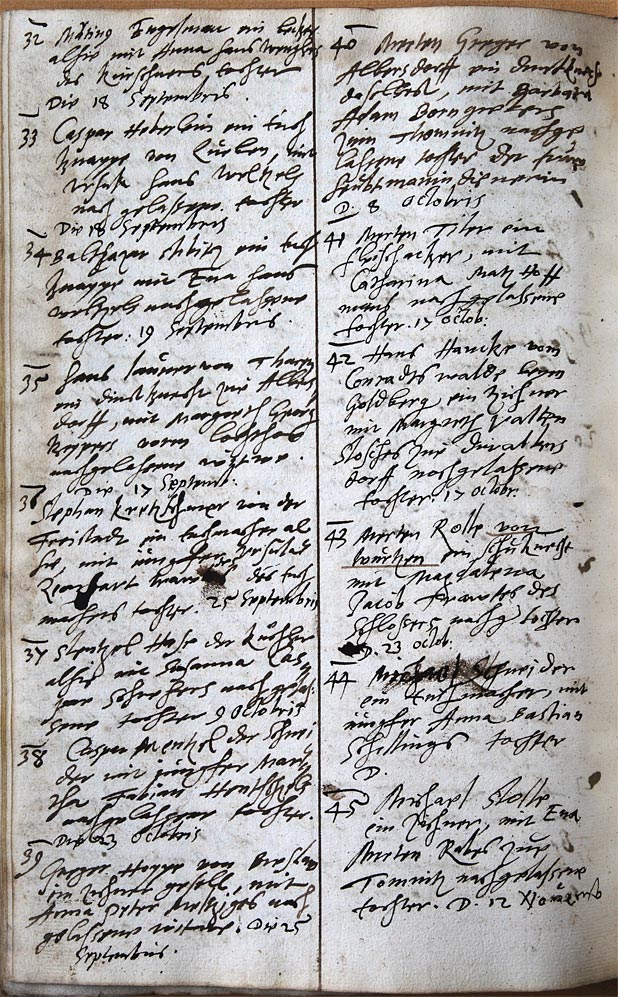 32 Märting Engelman ein
alhie mit Anna Hans
des Kürschners tochter
Die 18 Septembris.
33 Caspar ein Tuch
knappe von Lüeben, mit
Ursula Hans Weltzels
nach gelassene tochter
Die 18 Septembris
34 Balthazar ein tuch
knappe mit Eva Hans
Weltzels nachgelassene
tochter. 19 Septembris.
35 Hans von
ein dinstknecht zu Albers
dorff, mit Margreth Georg
vorm
nachgelassene witwe.
Die 17 Septemb:
36 Stephan Kretschmer in der
Freistadt ein tuchmacher al
hie, mit jungfer Ursula
des tuch
machers tochter. 25 Septembris
37 Stentzel Hose der Küchler
alhie mit Susanna Cas
par nach gelas:
sene tochter 9 Octobris
38 Caspar Mentzel der Schnei
der mit jungfer Mar
tha Fabian
nachgelassene tochter.
Die 23 Octobris
39 Greger Hoppe von Breslaw
ein Zichner gesell, mit
Anna Peter nach
gelassene witwe. Die 25
Septembris.
40 Merten Greger von
Albersdorff ein dinstknecht
daselbest, mit Barbara
Adam Borngrebers
zum Thomnitz nachge
lassene tochter der
dienerin
D. 8 Octobris
41 Merten Titer ein
Fleischacker, mit
Catharina Matz Hoff
man nachgelassene
tochter. 17 Octob:
42 Hans Hancke von
Conradtswalde beym
Goldberg ein Zichner
mit Margreth Valten
Stosches zu
dorff nachgelassene
tochter 17 Octobr.
43 Merten Rolle von
Wurtzen ein Schuknecht
mit Magdalena
Jacob des
Schlossers nachg tochter
D. 23 octob:
44 Michael Schneider
ein Tuchmacher, mit
jungfer Anna Bastian
Schillings tochter
D.
45 Michael Stolle
ein Zichner, mit Eva
Merten zue
Tomnitz nachgelassene
tochter. D. 12 Novemb